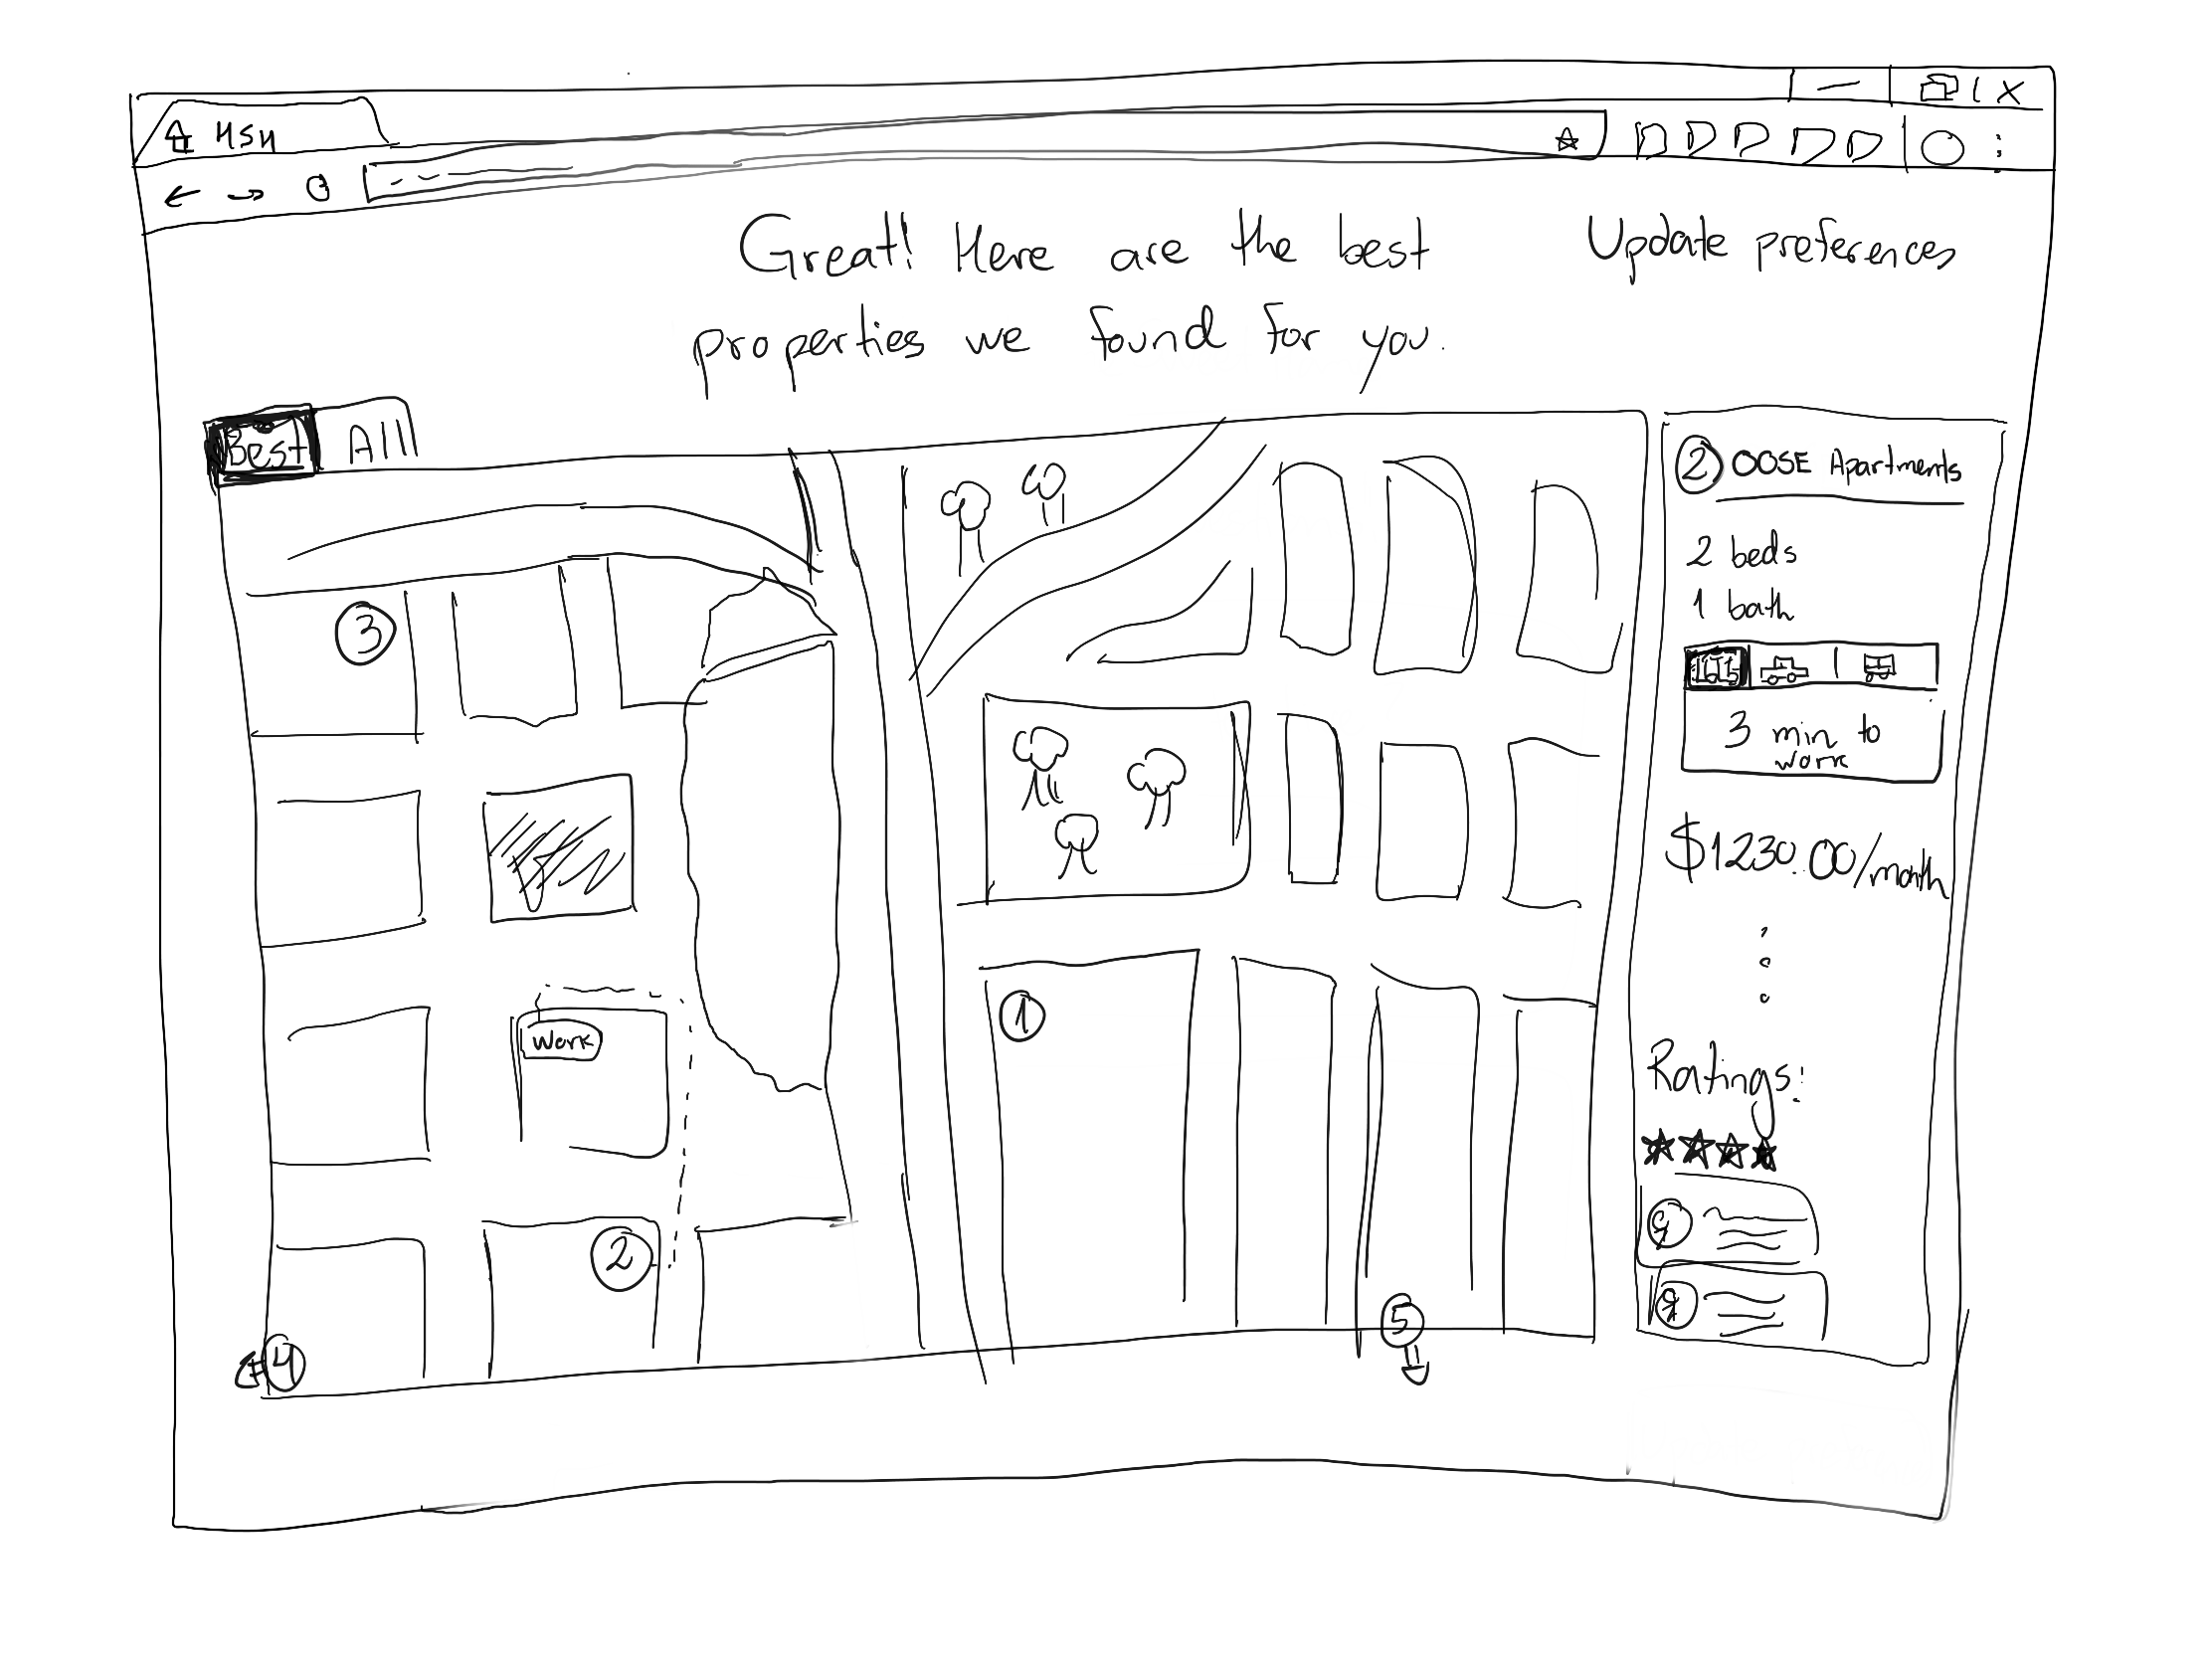 HSH
Great! Here are the best
properties we found for you.
Update preferences
Best
All
3
Work
1
2
4
5
2 OOSE Apartments
2 beds
1 bath
3 min to
work
$1230.00/month
Ratings: